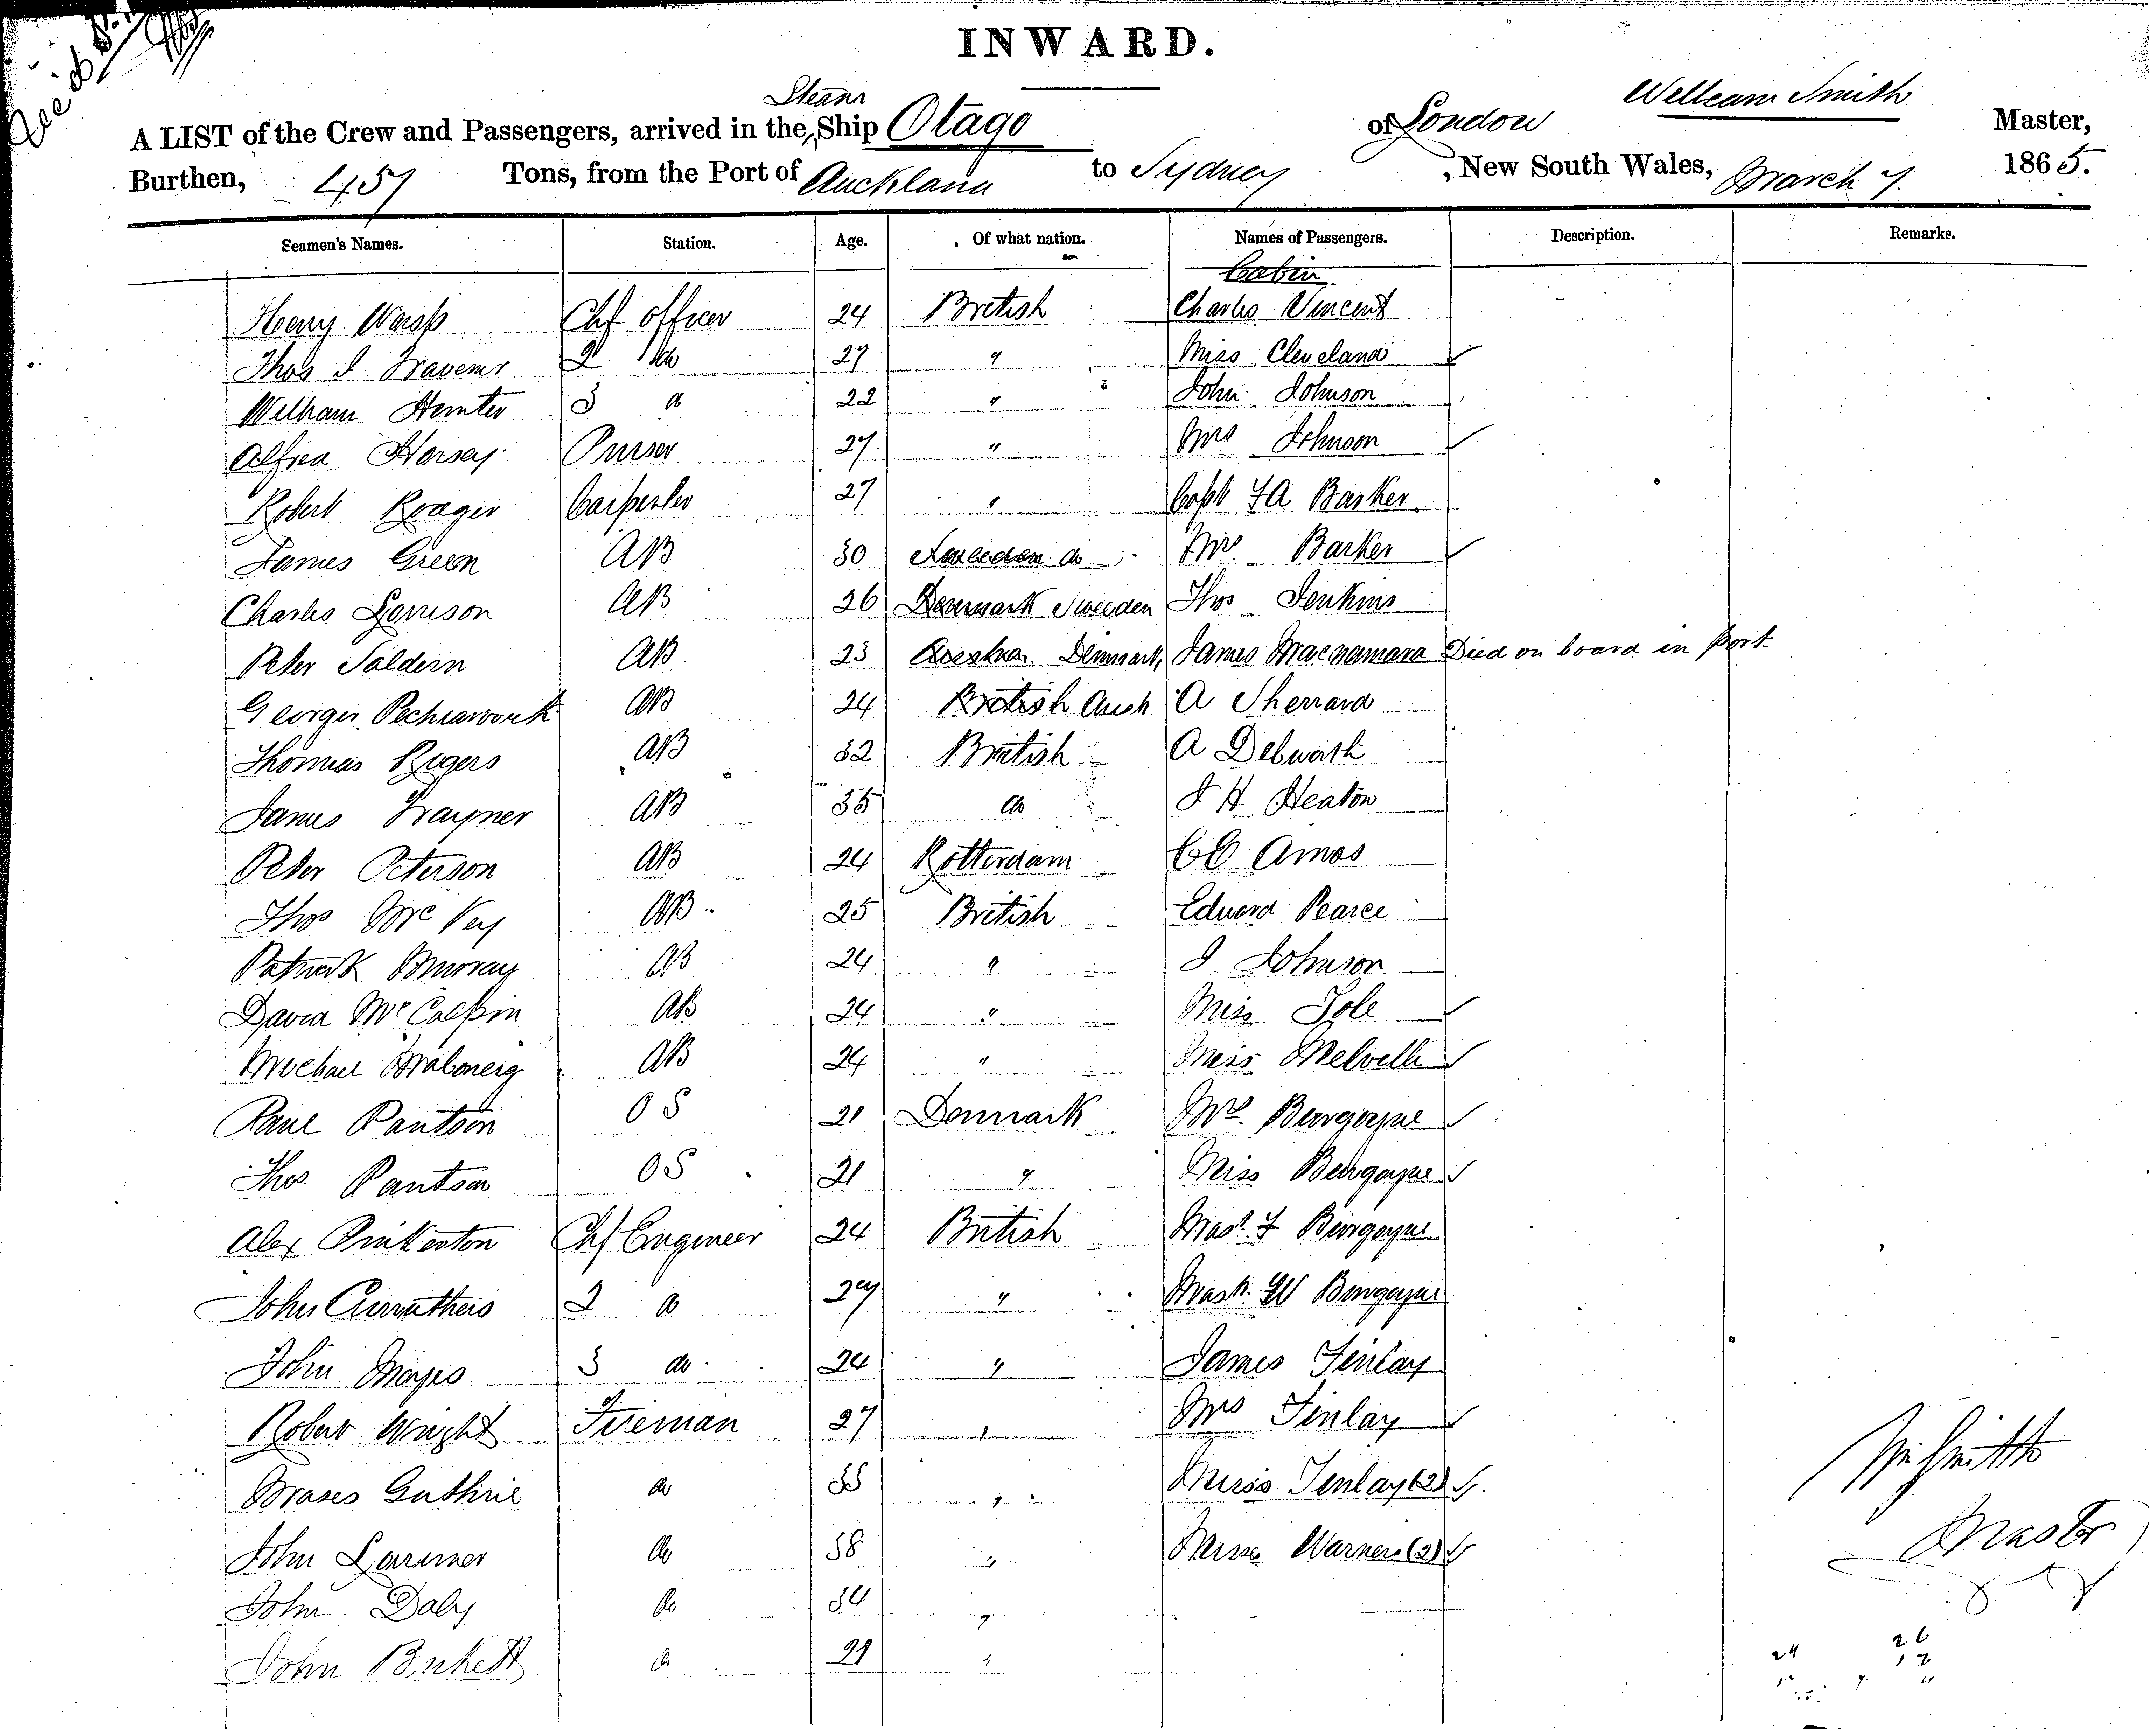 INWARD.
Steam
A LIST of the Crew and Passengers, arrived in the Ship Otago of London William Smith Master,
Burthen, 457 Tons, from the Port of Auckland to Sydney, New South Wales, March 7. 1865.
Seamen's Names. Station. Age. Of what nation. Names of Passengers. Description. Remarks.
Cabin
Henry Chf officer 24 British Charles Vincent
Thos J 2 do 27 " Miss Cleveland
William Hunter 3 do 22 " John Johnson
Alfred Horsey Purser 27 " Mrs Johnson
Robert Carpenter 27 " Capt Barker
James Green AB 30 Sweden do Mrs Barker
Charles Lorrison AB 26 Denmark Sweden Thos Jenkins
Peter Saldern AB 23 Denmark James Macnamara Died on board in port
George AB 24 British A Sherrard
Thomas Rogers AB 32 British A Delworth
James Traynor AB 35 do J H Heaton
Peter Peterson AB 24 Rotterdam CC Amos
Thos Mc Vey AB 25 British Edward Pearce
Patrick Murray AB 24 " J Johnson
David Mc Calpin AB 24 " Miss Tole
Michael Maloney AB 24 " Miss Melville
Paul Pantson OS 21 Denmark Mrs Burgoyne
Thos Pantson OS 21 " Miss Burgoyne
Alex Pinkerton Chf Engineer 24 British Mast. F Burgoyne
John Carruthers 2 do 29 " Mast. W Burgoyne
John 3 do 24 " James Finlay
Robert Wright Fireman 27 " Mrs Finlay
Moses Guthrie do 35 " Misses Finlay (2)
John Lorimer do 38 " Misses Warner (2)
John Daly do 34 "
John Birkett do 29 "
Wm Smith
Master
24 26
12